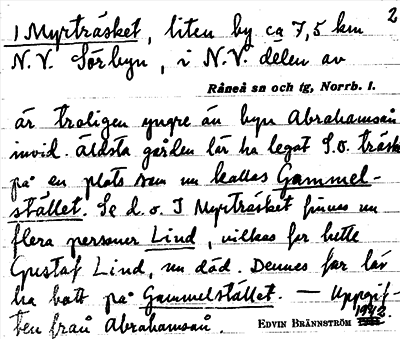 2
1 Myrträsket, liten by ca 7,5 km
N.V. Sörbyn, i N.V. delen av
Råneå sn och tg, Norrb. l.
är troligen yngre än byn Abrahamsån
invid. Äldsta gården lär ha legat S.o. träsk
på en plats som nu kallas Gammel-
stället. Se d. o. I Myrträsket finnes nu
flera personer Lind, vilkas far hette
Gustaf Lind, nu död. Dennes far lär
ha bott på Gammelstället. — Uppgif-
ten från Abrahamsån.
EDVIN BRÄNNSTRÖM 1942